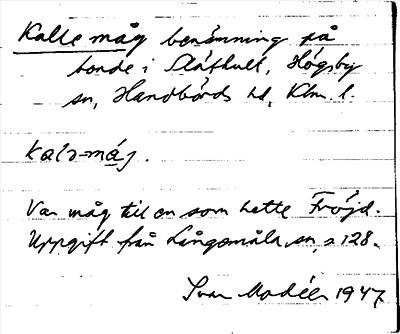 Kalle måg benämning på
bonde i Släthult, Högsby
sn, Handbörds hd, Klm l.
kalə-måg.
Var måg till en som hette Fröjd.
Uppgift från Långemåla sn, s 128.
Ivar Modéer 1947